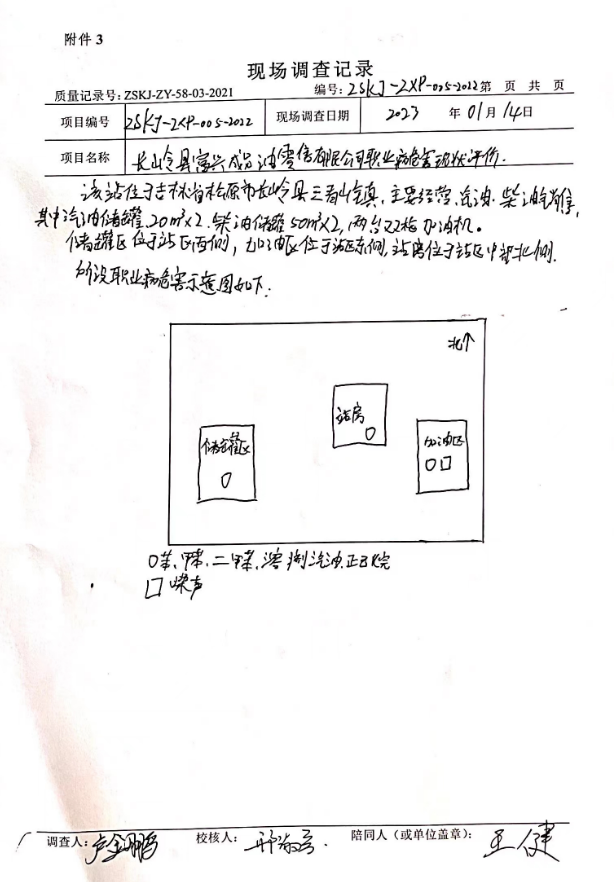 附件 3
现场调查记录
质量记录号: ZSKJ-ZY-58-03-2021 编号: ZSKJ-ZXP-005-2022 第 页 共 页
项目编号 ZSKJ-ZXP-005-2022 现场调查日期 2023 年 01 月 14 日
项目名称 长岭县富兴成品油零售有限公司职业病危害现状评价.
该站位于吉林省松原市长岭县三青山镇, 主要经营汽油、柴油销售,
其中汽油储罐 20m³×2. 柴油储罐 50m³×2, 两台双枪加油机。
储罐区位于站区西侧, 加油区位于站区东侧, 站房位于站区中部北侧.
职业病危害示意图如下:
北↑
站房
储罐区
加油区
○苯、甲苯、二甲苯、溶剂汽油、正己烷
□噪声
调查人: 校核人: 陪同人（或单位盖章）: 王健